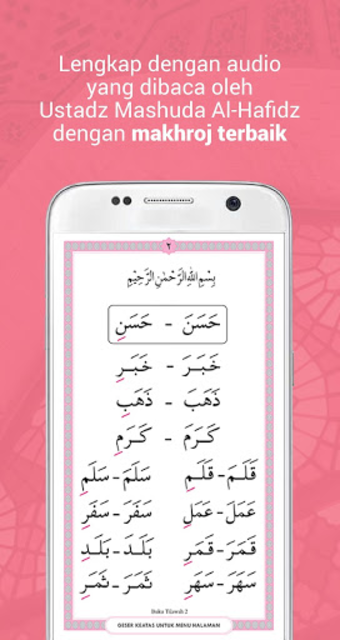 Lengkap dengan audio
yang dibaca oleh
Ustadz Mashuda Al-Hafidz
dengan makhroj terbaik
٢
بِسْمِ اللهِ الرَّحْمٰنِ الرَّحِيْمِ
حَسَنَ - حَسَنِ
خَبَرَ - خَبَرِ
ذَهَبَ - ذَهَبِ
كَرَمَ - كَرَمِ
قَلَمَ - قَلَمِ سَلَمَ - سَلَمِ
عَمَلَ - عَمَلِ سَفَرَ - سَفَرِ
قَمَرَ - قَمَرِ بَلَدَ - بَلَدِ
سَهَرَ - سَهَرِ ثَمَرَ - ثَمَرِ
Buku Tilawah 2
GESER KEATAS UNTUK MENU HALAMAN